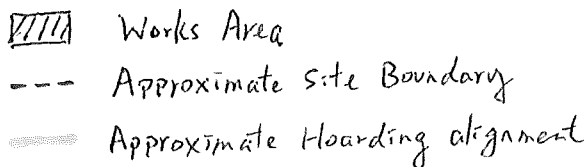 Works Area
Approximate Site Boundary
Approximate Hoarding alignment